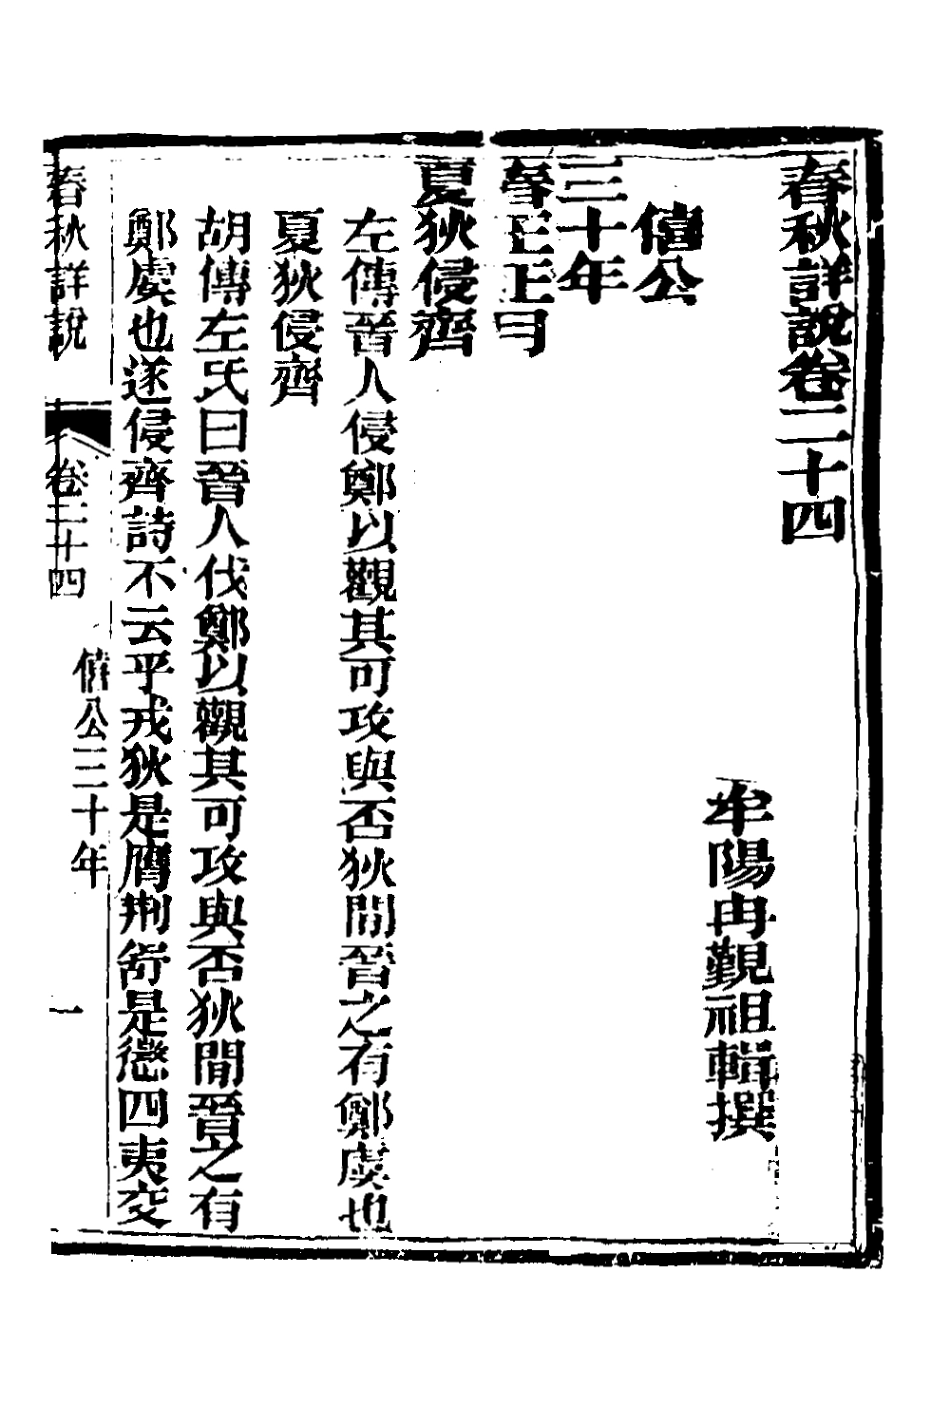 春秋詳說卷二十四
牟陽冉覲祖輯撰
僖公
三十年
春王正月
夏狄侵齊
左傳晉人侵鄭以觀其可攻與否狄間晉之有鄭虞也
夏狄侵齊
胡傳左氏曰晉人伐鄭以觀其可攻與否狄間晉之有
鄭虞也遂侵齊詩不云乎戎狄是膺荆舒是懲四夷交
春秋詳說 卷二十四 僖公三十年 一